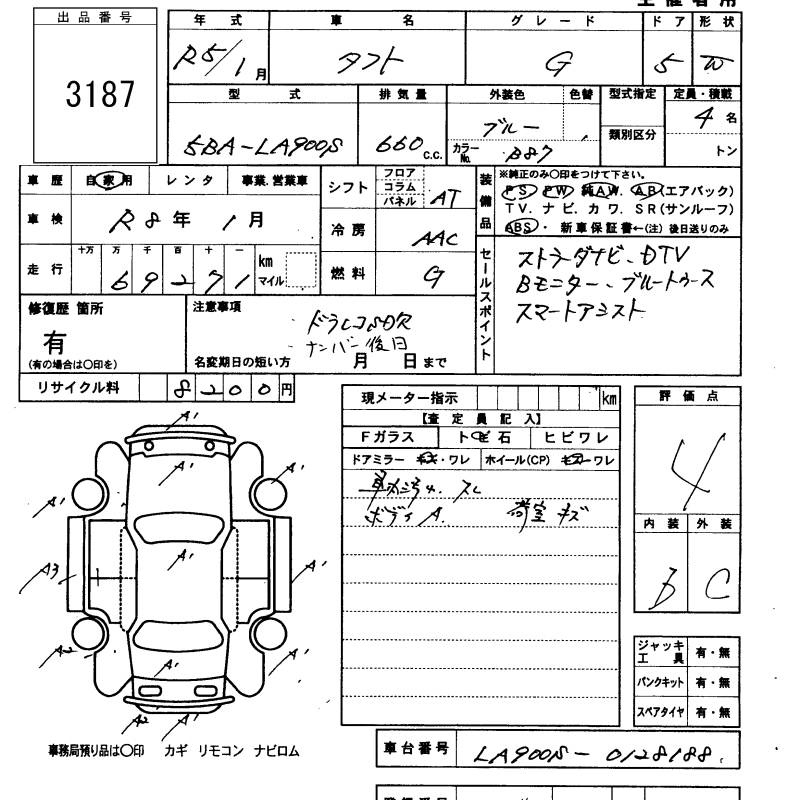 主催者用
出品番号
3187
年式 車名 グレード ドア 形状
R5/1月 タフト G 5 W
型式 排気量 外装色 色替 型式指定 定員・積載
5BA-LA900S 660 c.c. ブルー 4名
カラーNo. B87 類別区分 トン
車歴 自家用 レンタ 事業.営業車
シフト フロア コラム パネル AT
車検 R8年 1月
冷房 AAC
走行 十万 万 千 百 十 一
69271 km マイル
燃料 G
装備品 ※純正のみ〇印をつけて下さい。
PS PW 純AW. AB(エアバック)
TV. ナビ. カワ. SR(サンルーフ)
ABS・ 新車保証書←(注)後日送りのみ
セールスポイント
ストラーダナビ、DTV
Bモニター、ブルートゥース
スマートアシスト
修復歴 箇所
有
(有の場合は〇印を)
注意事項
ドラレコSD欠
ナンバー後日
名変期日の短い方 月 日まで
リサイクル料 8200円
現メーター指示 km
【査定員記入】
Fガラス トビ石 ヒビワレ
ドアミラー キズ・ワレ ホイール(CP) キズ・ワレ
ボディA. 荷室キズ
評価点
4
内装 外装
B C
ジャッキ工具 有・無
パンクキット 有・無
スペアタイヤ 有・無
A'
A'
A' A'
A'
A3 A'
A2 A' A'
A2 A'
事務局預り品は〇印 カギ リモコン ナビロム
車台番号 LA900S-0128188